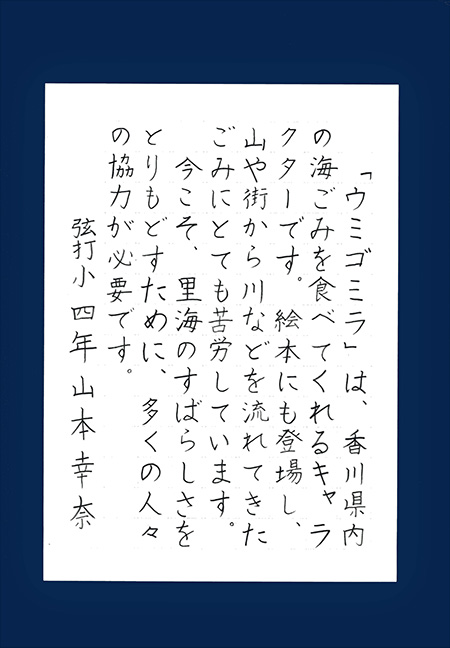 「ウミゴミラ」は、香川県内
の海ごみを食べてくれるキャラ
クターです。絵本にも登場し、
山や街から川などを流れてきた
ごみにとても苦労しています。
今こそ、里海のすばらしさを
とりもどすために、多くの人々
の協力が必要です。
弦打小 四年 山本幸奈